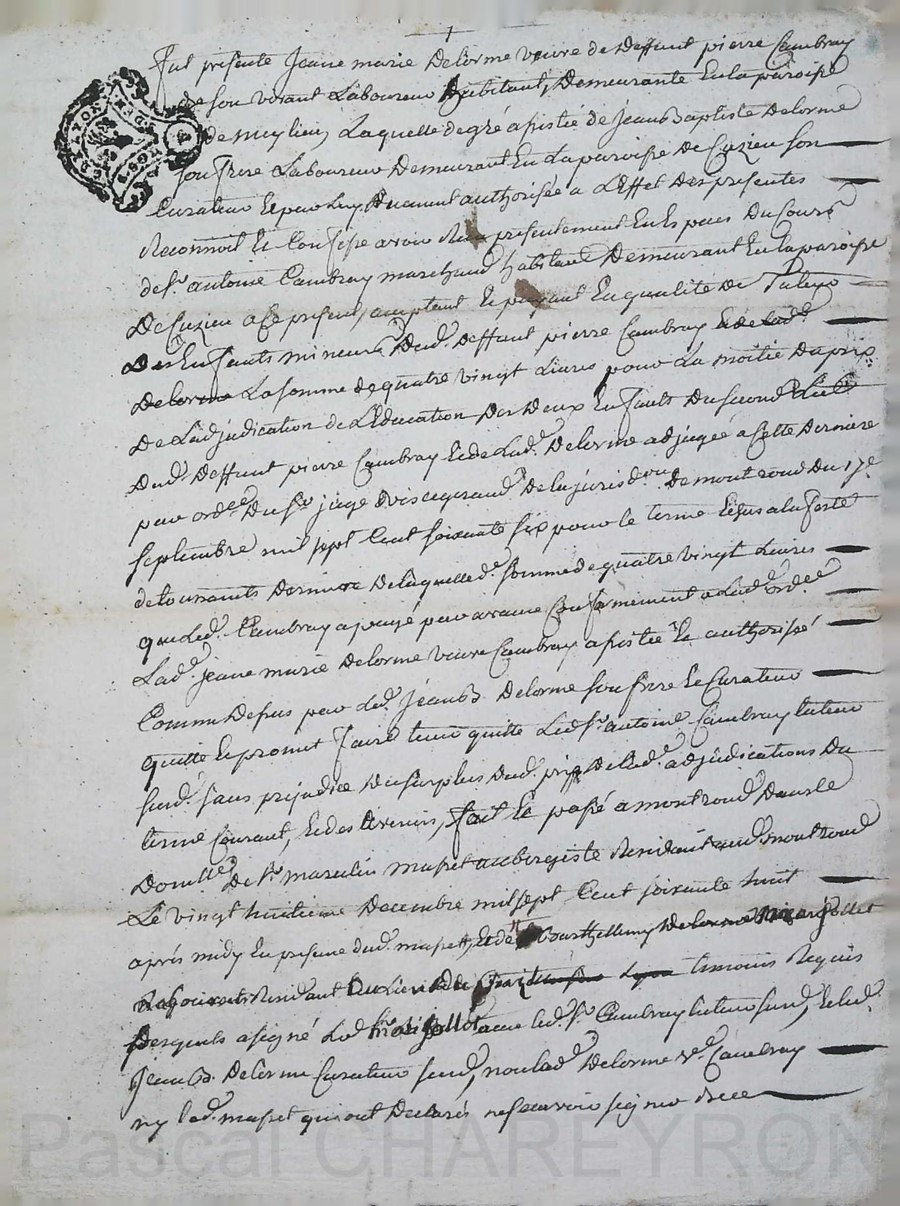 1
fut presente Jeane marie Delorme veuve de deffunt pierre Cambray
de son vivant Laboureur habitant, Demeurante En la paroisse
de meylieu, Laquelle de gré assistée de Jean Baptiste Delorme
son frere Laboureur Demeurant En La paroisse De Cuzieu son
Curateur Et par Luy Duement authorisée a L'effet Des presentes
Reconnoit Et Confesse avoir Reçu presentement En Especes Du Cours
de Sr. antoine Cambray marchand habitant Demeurant En la paroisse
De Cuzieu a Ce present, acceptant Et payant En qualité De Tuteur
Des Enfants mineurs Dud. Deffunt pierre Cambray Et de Lad.
Delorme La somme de quatre vingt Livres pour La moitié Du prix
De L'adjudication de L'Education Des Deux Enfants Du second
Dud. Deffunt pierre Cambray Et de Lad. Delorme adjugée a Cette Derniere
par ordce. Du Sr. juge De la jurison. De montrond Du 17e
septembre mil sept Cent soixante six pour le terme Echus a la feste
de toussaints Derniere De laquelle de. somme de quatre vingt Livres
que Led. Cambray a payé par avance Conformement a Lad. ordce.
Lad. jeane marie Delorme veuve Cambray assistée Et authorisé
Comme Dessus par Led. Jean B. Delorme son frere Et Curateur
quitte Et promet faire tenir quitte Led. Sr. antoine Cambray tuteur
susd. sans prejudice Du surplus Dud. prix De Lad. adjudications Du
terme Courant, Et des avenirs, fait Et passé a montrond Dans le
Domlle. De Sr. marcelin maset aubergiste Residant aud. montrond
Le vingt huitieme Decembre mil sept Cent soixante huit
aprés midy En presence dud. maset, Et de Barthellemy Delorme jollet
Laboureur Residant temoins Requis
Desquels a signé Led. jollet avec led. Sr. Cambray tuteur susd, Et led.
Jean B. Delorme Curateur susd, non lad. Delorme ve. Cambray
ny led. maset qui ont Declarés ne scavoir signer
Pascal CHAREYRON